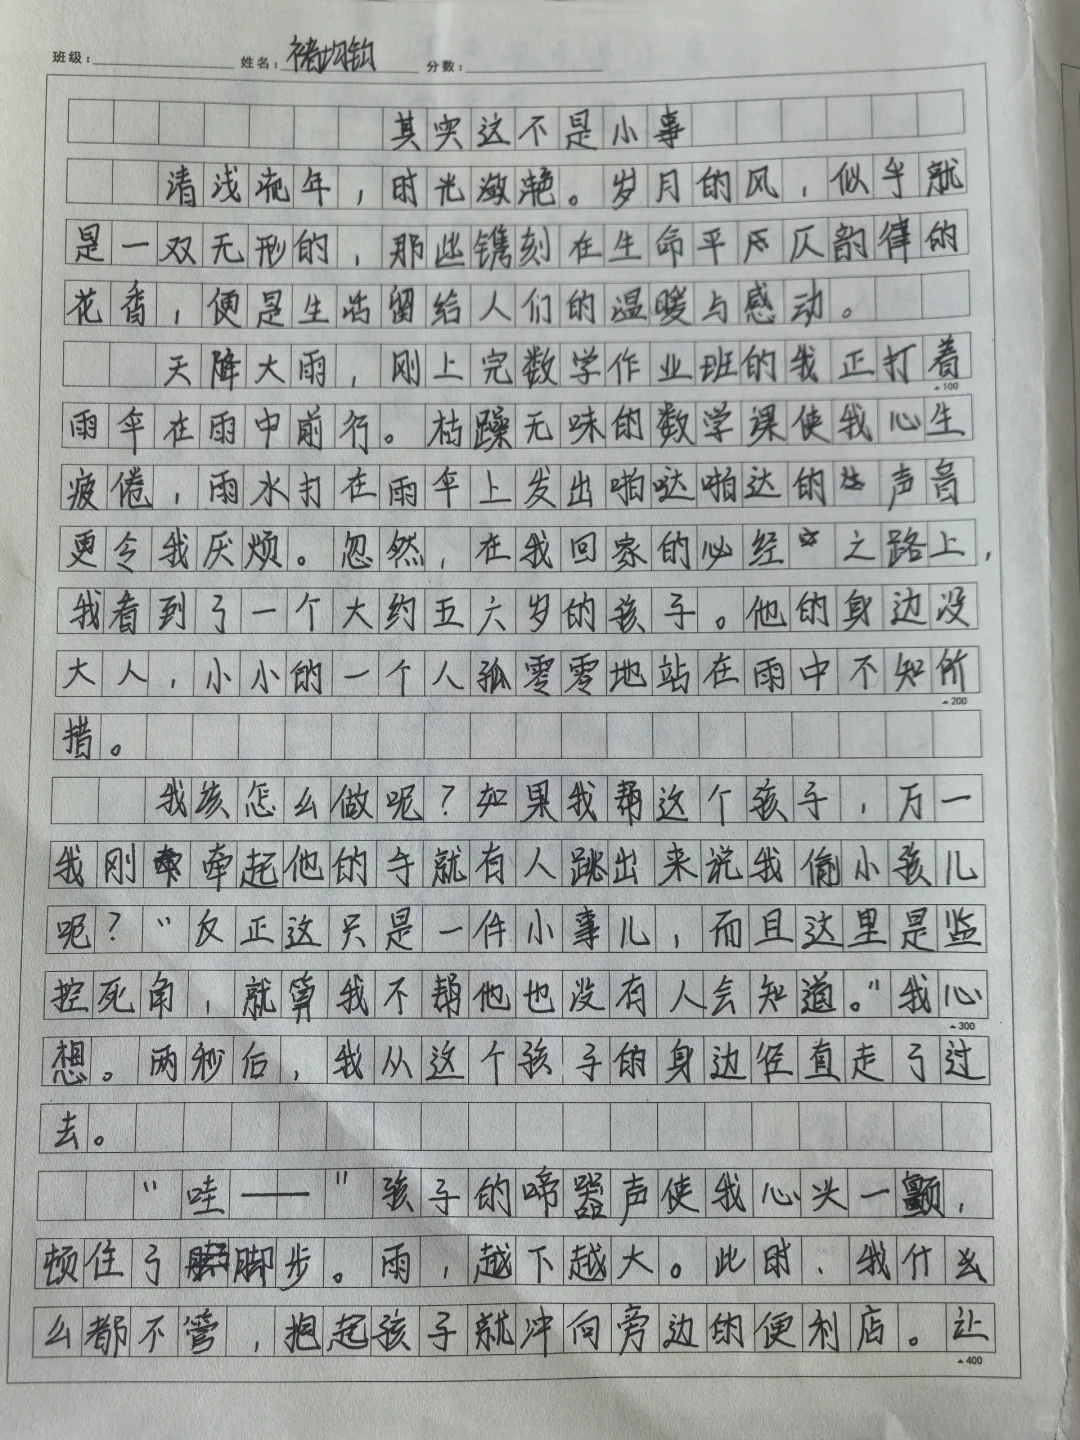 班级： 姓名：褚均钧 分数：
其实这不是小事
清浅流年，时光潋滟。岁月的风，似乎就
是一双无形的，那些镌刻在生命平平仄仄韵律的
花香，便是生活留给人们的温暖与感动。
天降大雨，刚上完数学作业班的我正打着
▲100
雨伞在雨中前行。枯躁无味的数学课使我心生
疲倦，雨水打在雨伞上发出啪哒啪达的声音
更令我厌烦。忽然，在我回家的必经之路上，
我看到了一个大约五六岁的孩子。他的身边没
大人，小小的一个人孤零零地站在雨中不知所
▲200
措。
我该怎么做呢？如果我帮这个孩子，万一
我刚牵起他的手就有人跳出来说我偷小孩儿
呢？“反正这只是一件小事儿，而且这里是监
控死角，就算我不帮他也没有人会知道。”我心
▲300
想。两秒后，我从这个孩子的身边径直走了过
去。
“哇——”孩子的啼器声使我心头一颤，
顿住了脚步。雨，越下越大。此时、我什么
么都不管，抱起孩子就冲向旁边的便利店。让
▲400